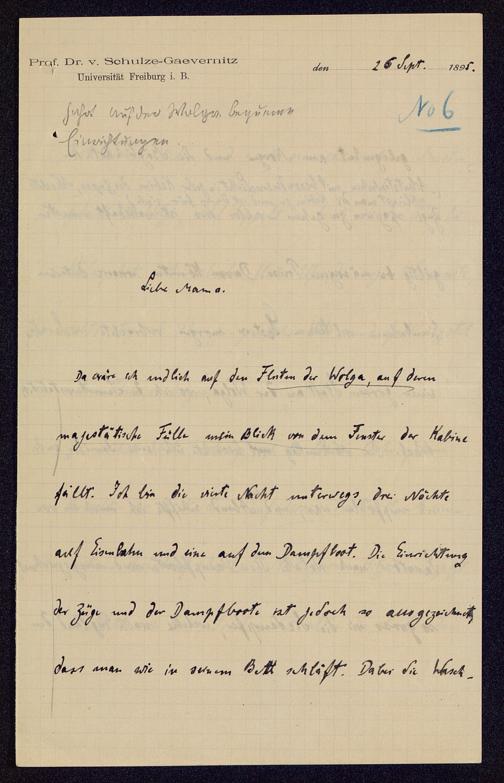 Prof. Dr. v. Schulze-Gaevernitz
Universität Freiburg i. B.
den 26 Sept. 1895.
No 6
Fahrt auf der Wolga bequeme
Einrichtungen.
Liebe Mama.
Da wäre ich endlich auf den Fluten der Wolga, auf deren
majestätische Fülle mein Blick von dem Fenster der Kabine
fällt. Ich bin die vierte Nacht unterwegs, drei Nächte
auf Eisenbahn und eine auf dem Dampfboot. Die Einrichtung
der Züge und der Dampfboote ist jedoch so ausgezeichnet,
dass man wie in seinem Bett schläft. Dabei die Wasch-